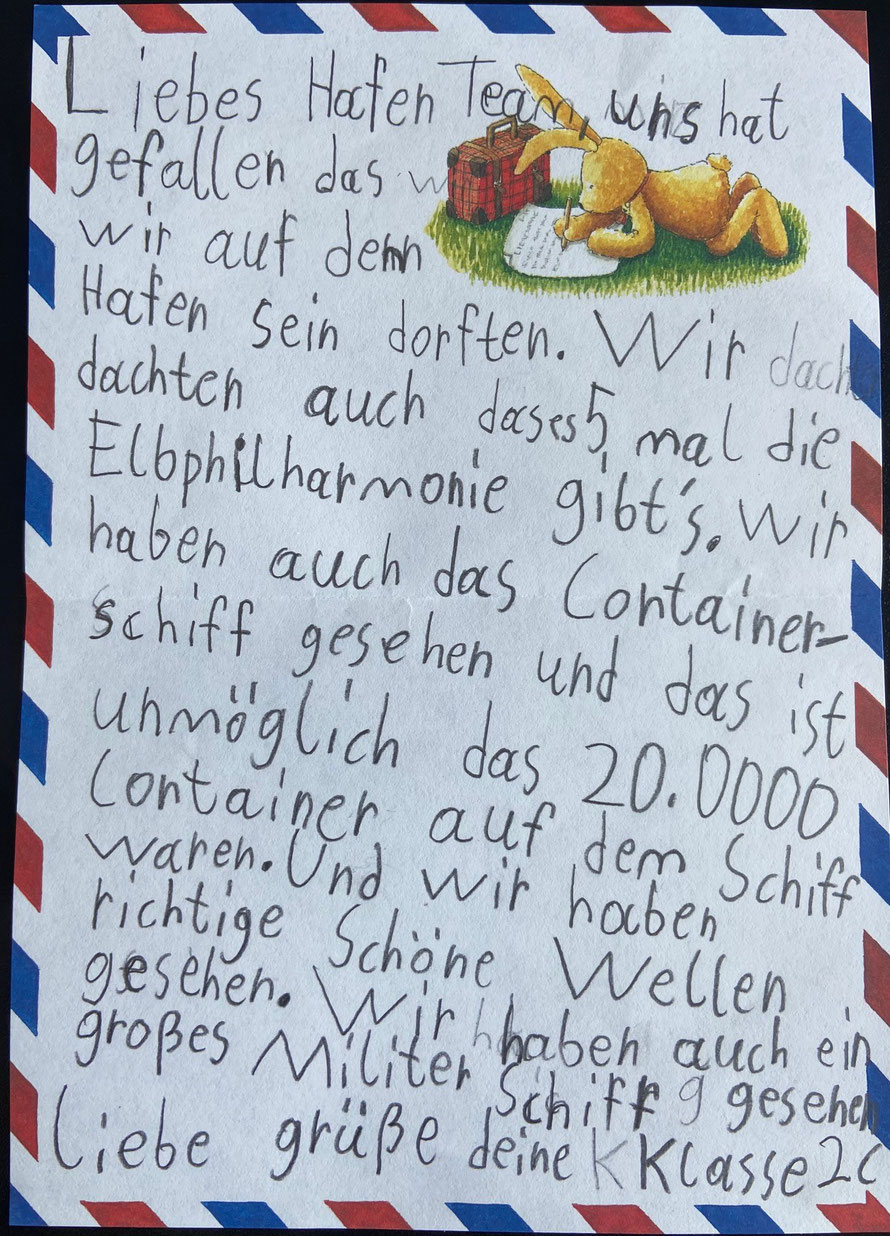 Liebes Hafen Team, uns hat
gefallen das w
wir auf denn
Hafen sein dorften. Wir dach
dachten auch das es 5 mal die
Elbphilharmonie gibt's. Wir
haben auch das Container-
schiff gesehen und das ist
unmöglich das 20.0000
Container auf dem Schiff
waren. Und wir haben
richtige Schöne Wellen
gesehen. Wir haben auch ein
großes Militer Schiff g gesehen
Liebe grüße deine K Klasse 2c